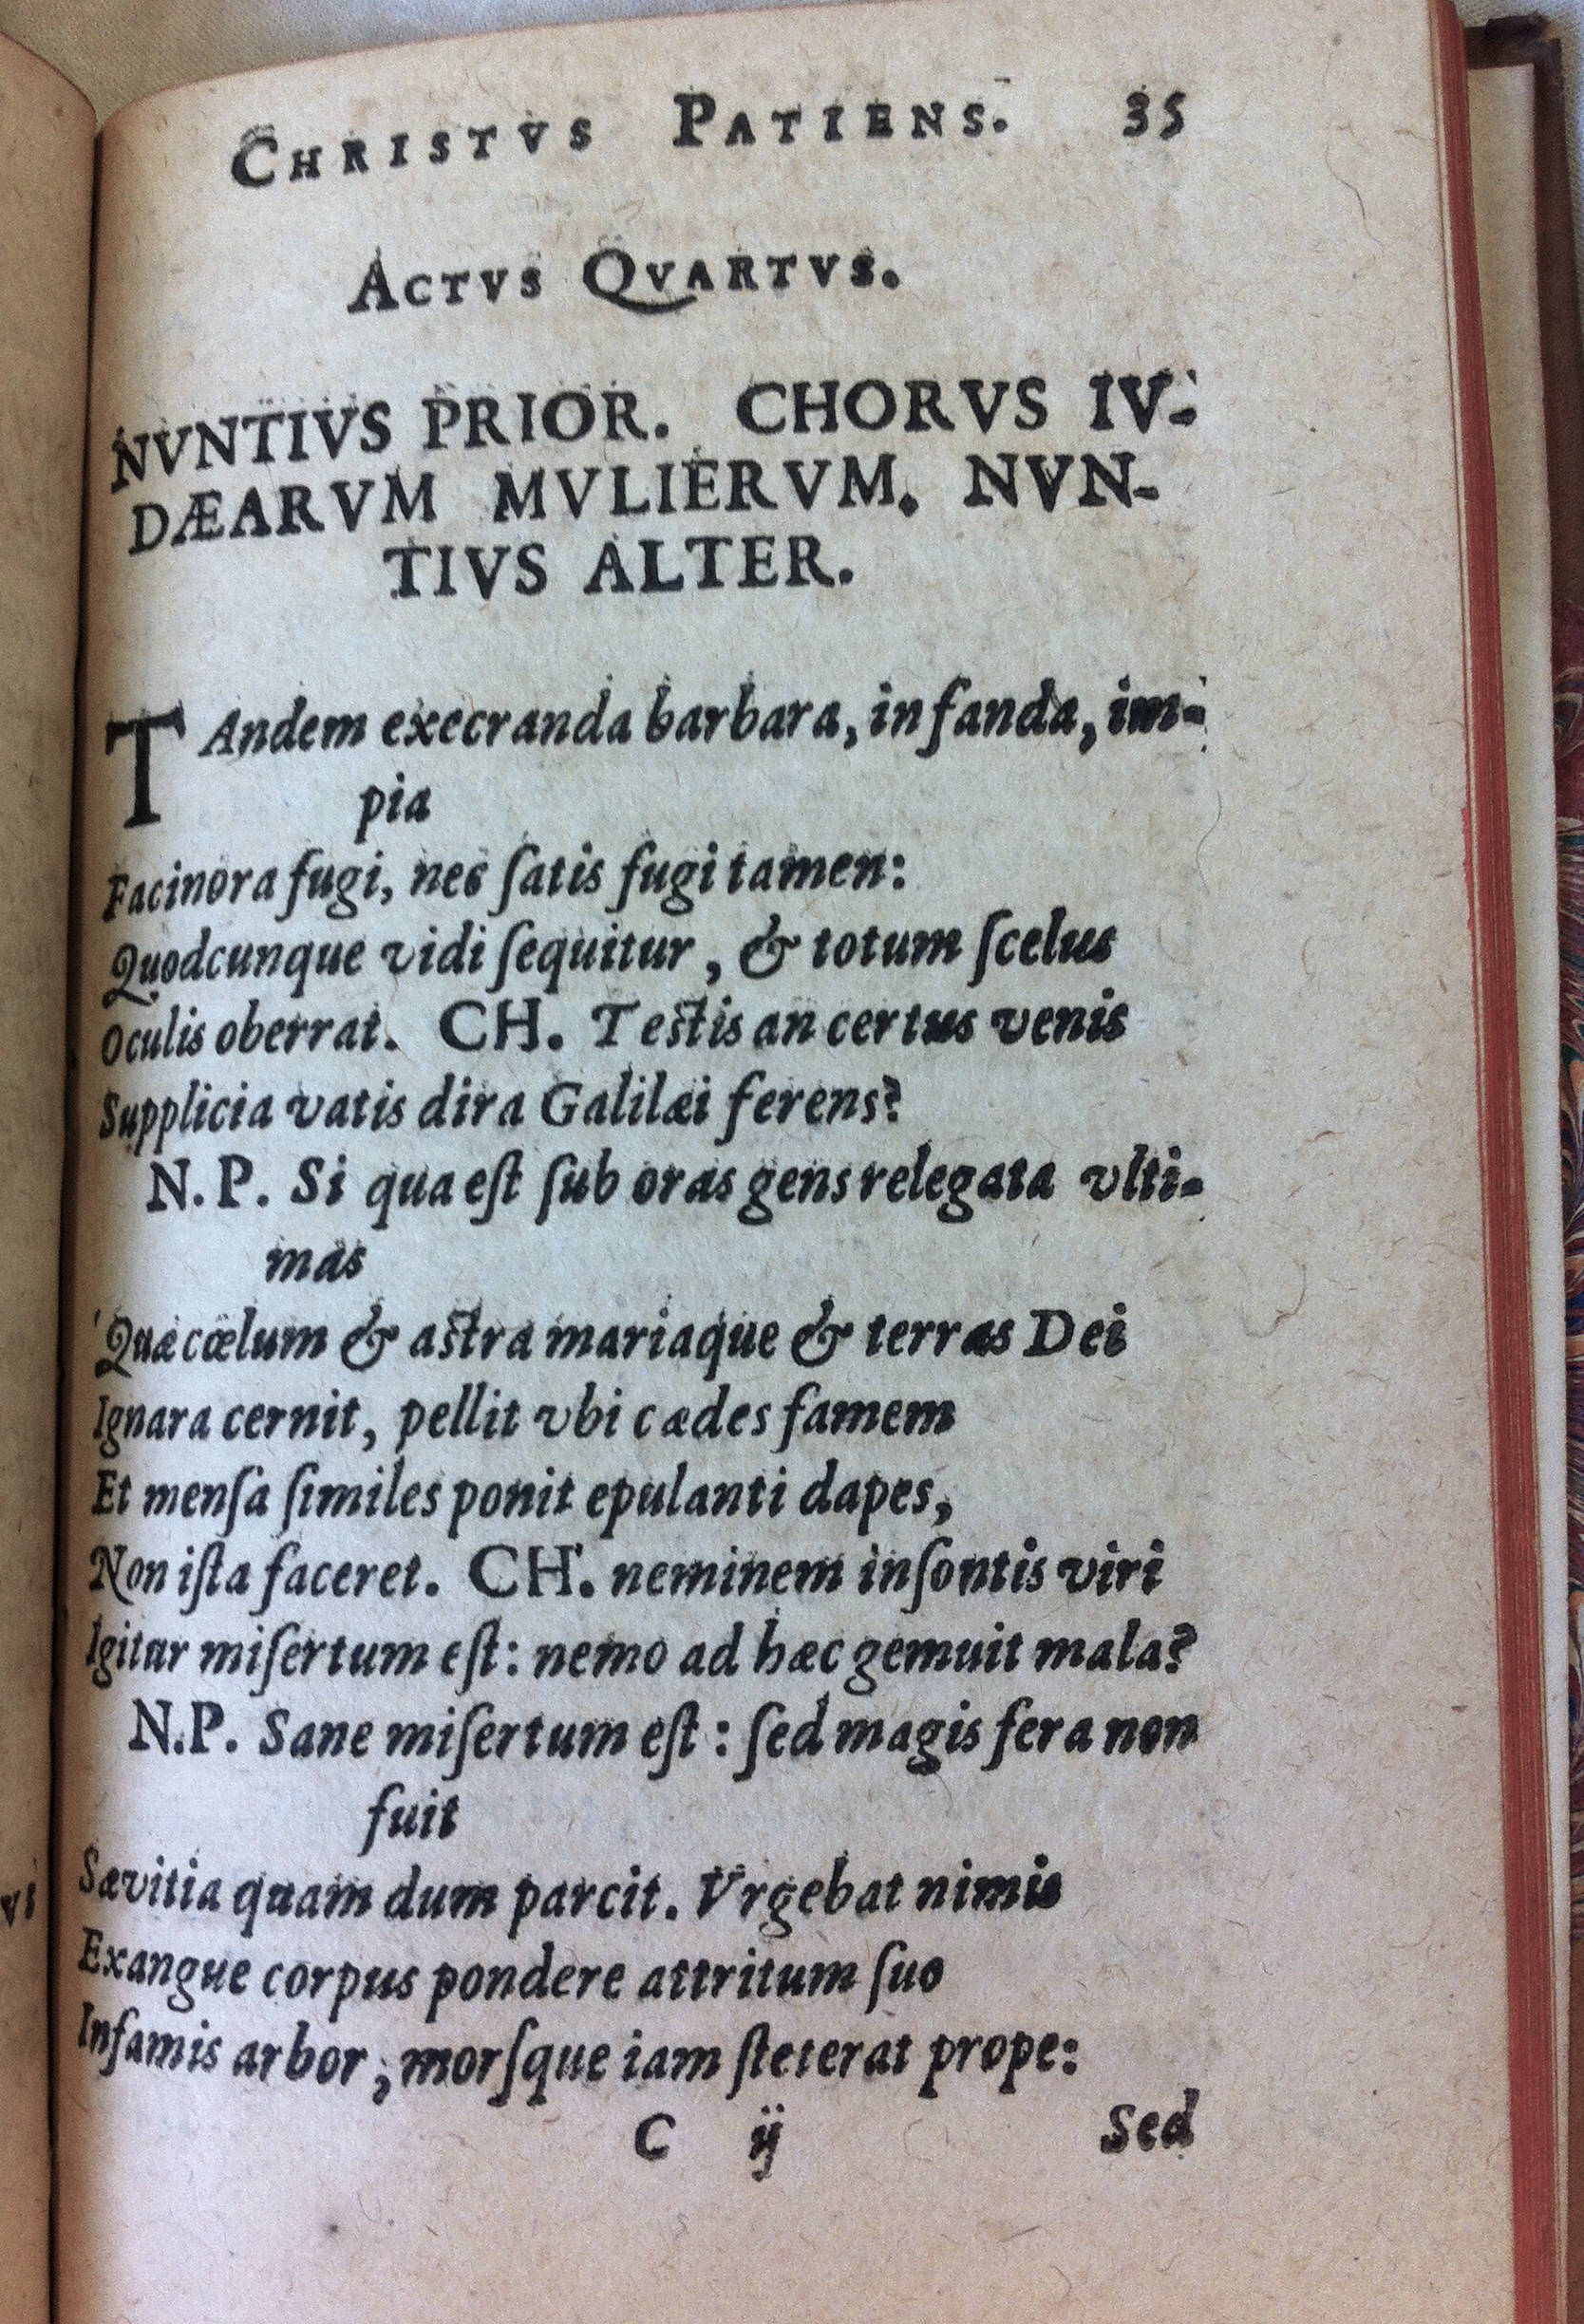 CHRISTVS PATIENS. 35
ACTVS QVARTVS.
NVNTIVS PRIOR. CHORVS IV-
DÆARVM MVLIERVM. NVN-
TIVS ALTER.
TAndem execranda barbara, infanda, im-
pia
Facinora fugi, nec ſatis fugi tamen:
Quodcunque vidi ſequitur, & totum ſcelus
Oculis oberrat. CH. Teſtis an certus venis
Supplicia vatis dira Galilæi ferens?
N.P. Si qua eſt ſub oras gens relegata vlti-
mas
Quæ cœlum & aſtra mariaque & terras Dei
Ignara cernit, pellit vbi cædes famem
Et menſa ſimiles ponit epulanti dapes,
Non iſta faceret. CH. neminem inſontis viri
Igitur miſertum eſt: nemo ad hæc gemuit mala?
N.P. Sane miſertum eſt: ſed magis fera non
fuit
Sævitia quam dum parcit. Vrgebat nimis
Exangue corpus pondere attritum ſuo
Infamis arbor, morſque iam ſteterat prope:
C ij Sed